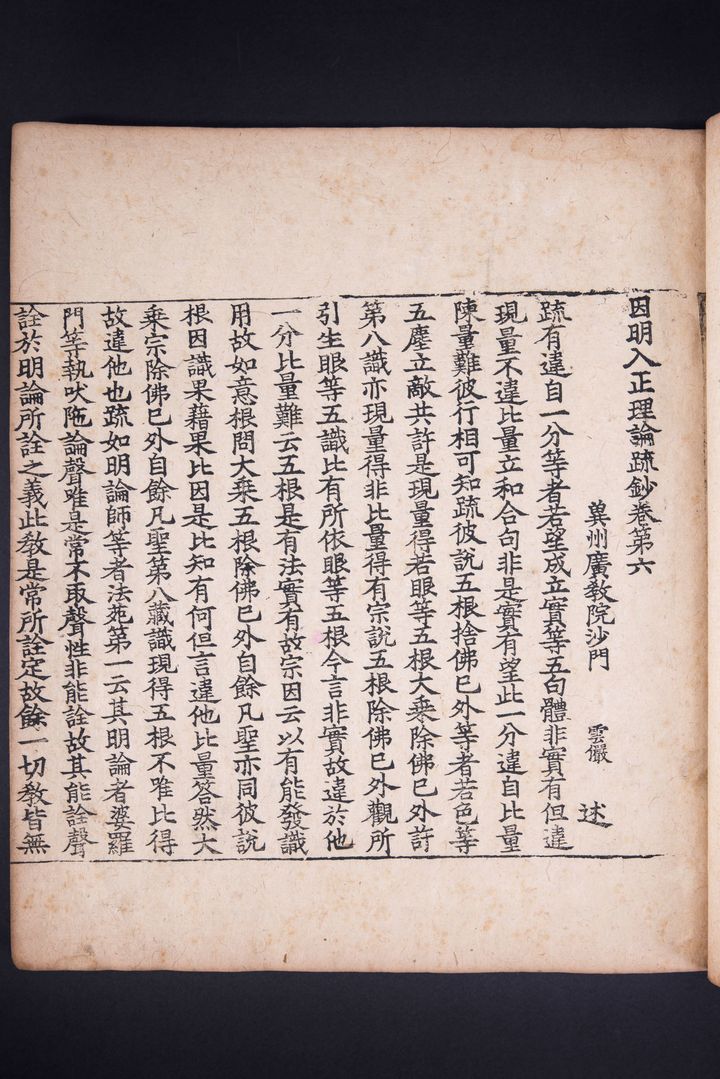 因明入正理論䟽鈔卷第六
冀州廣教院沙門 雲儼 述
䟽有違自一分等者若望成立實等五句體非實有但違
現量不違比量立和合句非是實有望此一分違自比量
陳量難彼行相可知䟽彼說五根捨佛已外等者若色等
五塵立敵共許是現量得若眼等五根大乗除佛已外許
第八識亦現量得非比量得有宗說五根除佛已外觀所
引生眼等五識比有所依眼等五根今言非實故違於他
一分比量難云五根是有法實有故宗因云以有能發識
用故如意根問大乗五根除佛已外自餘凡聖亦同彼說
根因識果藉果比因是比知有何但言違他比量答然大
乗宗除佛已外自餘凡聖第八藏識現得五根不唯比得
故違他也䟽如明論師等者法苑第一云其明論者婆羅
門等執吠陁論聲唯是常不取聲性非能詮故其能詮聲
詮於明論所詮之義此教是常所詮定故餘一切教皆無